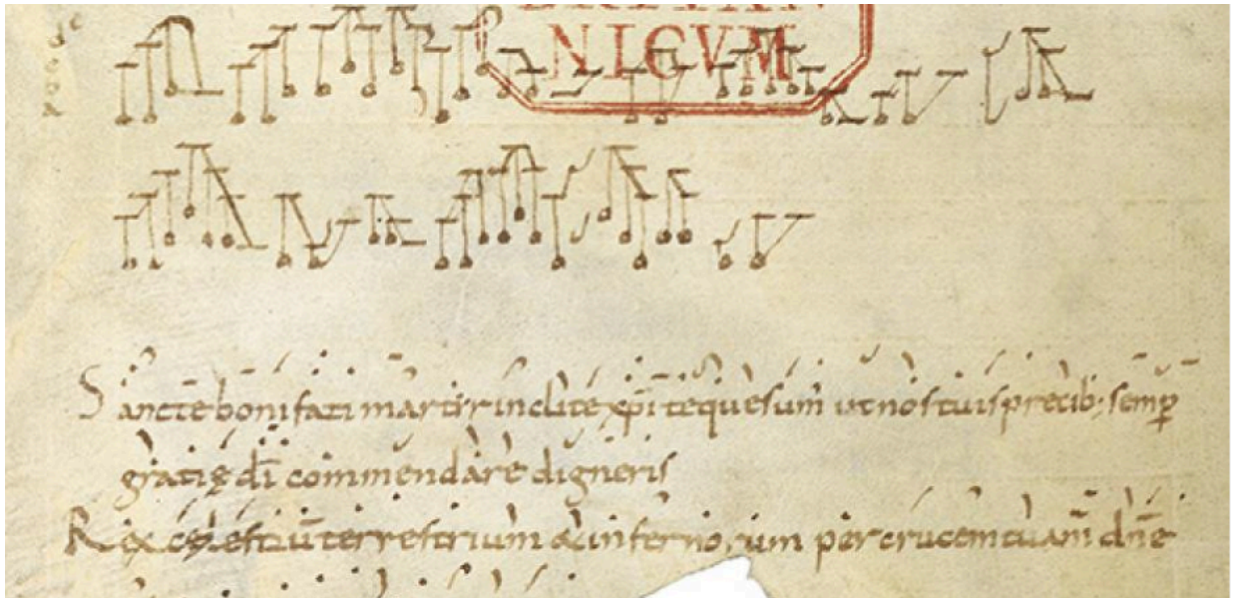 NICVM
Sancte bonifati martir inclite xp̄i te quesum̄ ut nos tuis precib; semp̄
gratię dī commendare digneris
Rex cęlestiū terrestrium & infernorum per crucem tuam̄ dn̄e